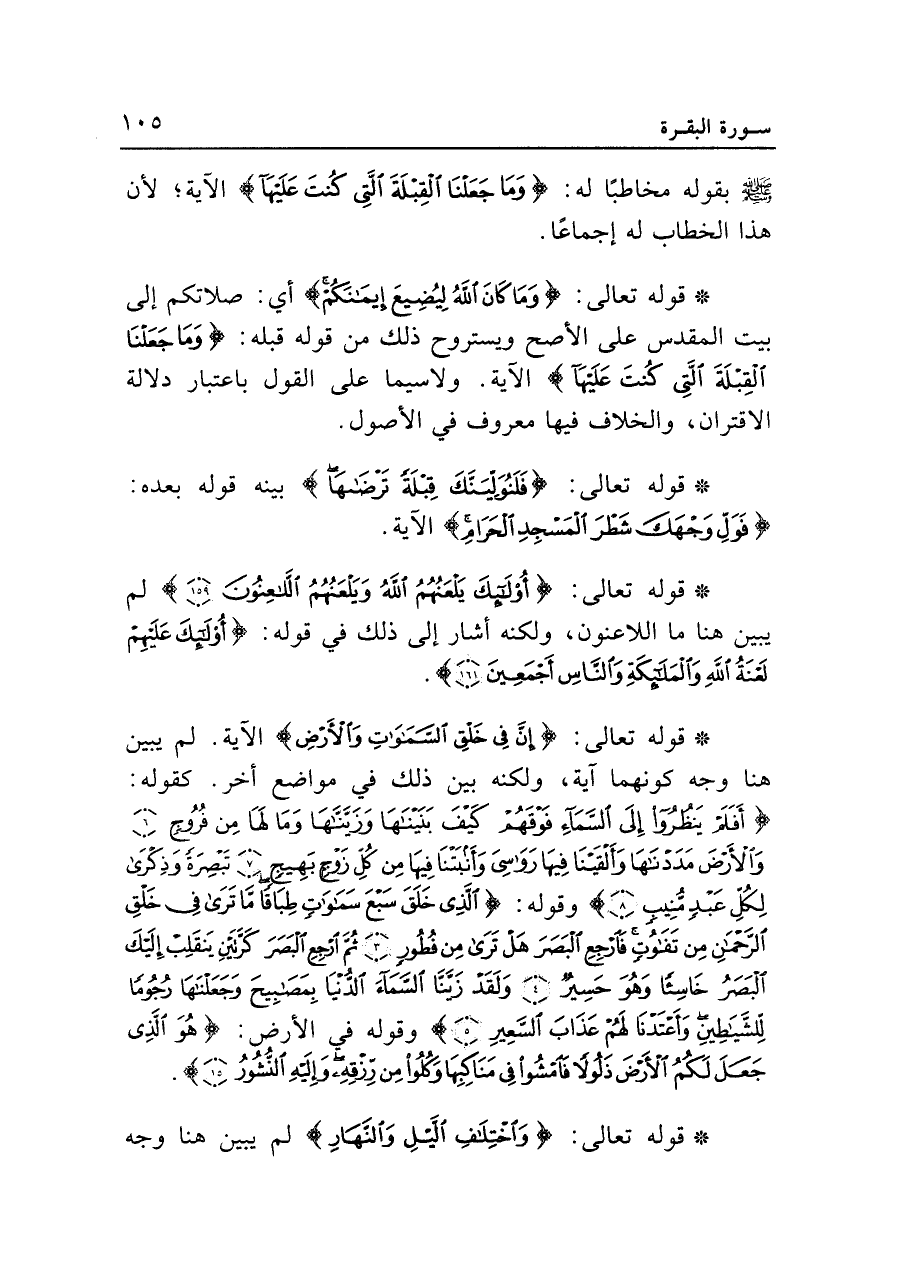 سـورة البقـرة ١٠٥
ﷺ بقوله مخاطبًا له: ﴿ وَمَا جَعَلْنَا ٱلْقِبْلَةَ ٱلَّتِى كُنتَ عَلَيْهَآ ﴾ الآية؛ لأن
هذا الخطاب له إجماعًا.
* قوله تعالى: ﴿ وَمَا كَانَ ٱللَّهُ لِيُضِيعَ إِيمَـٰنَكُمْۚ ﴾ أي: صلاتكم إلى
بيت المقدس على الأصح ويستروح ذلك من قوله قبله: ﴿ وَمَا جَعَلْنَا
ٱلْقِبْلَةَ ٱلَّتِى كُنتَ عَلَيْهَآ ﴾ الآية. ولاسيما على القول باعتبار دلالة
الاقتران، والخلاف فيها معروف في الأصول.
* قوله تعالى: ﴿ فَلَنُوَلِّيَنَّكَ قِبْلَةً تَرْضَىٰهَاۚ ﴾ بينه قوله بعده:
﴿ فَوَلِّ وَجْهَكَ شَطْرَ ٱلْمَسْجِدِ ٱلْحَرَامِۚ ﴾ الآية.
* قوله تعالى: ﴿ أُو۟لَـٰٓئِكَ يَلْعَنُهُمُ ٱللَّهُ وَيَلْعَنُهُمُ ٱللَّـٰعِنُونَ ١٥٩ ﴾ لم
يبين هنا ما اللاعنون، ولكنه أشار إلى ذلك في قوله: ﴿ أُو۟لَـٰٓئِكَ عَلَيْهِمْ
لَعْنَةُ ٱللَّهِ وَٱلْمَلَـٰٓئِكَةِ وَٱلنَّاسِ أَجْمَعِينَ ١٦١ ﴾.
* قوله تعالى: ﴿ إِنَّ فِى خَلْقِ ٱلسَّمَـٰوَٰتِ وَٱلْأَرْضِ ﴾ الآية. لم يبين
هنا وجه كونهما آية، ولكنه بين ذلك في مواضع أخر. كقوله:
﴿ أَفَلَمْ يَنظُرُوٓا۟ إِلَى ٱلسَّمَآءِ فَوْقَهُمْ كَيْفَ بَنَيْنَـٰهَا وَزَيَّنَّـٰهَا وَمَا لَهَا مِن فُرُوجٍ ٦
وَٱلْأَرْضَ مَدَدْنَـٰهَا وَأَلْقَيْنَا فِيهَا رَوَٰسِىَ وَأَنۢبَتْنَا فِيهَا مِن كُلِّ زَوْجٍۭ بَهِيجٍ ٧ تَبْصِرَةً وَذِكْرَىٰ
لِكُلِّ عَبْدٍ مُّنِيبٍ ٨ ﴾ وقوله: ﴿ ٱلَّذِى خَلَقَ سَبْعَ سَمَـٰوَٰتٍ طِبَاقًاۖ مَّا تَرَىٰ فِى خَلْقِ
ٱلرَّحْمَـٰنِ مِن تَفَـٰوُتٍۖ فَٱرْجِعِ ٱلْبَصَرَ هَلْ تَرَىٰ مِن فُطُورٍ ٣ ثُمَّ ٱرْجِعِ ٱلْبَصَرَ كَرَّتَيْنِ يَنقَلِبْ إِلَيْكَ
ٱلْبَصَرُ خَاسِئًا وَهُوَ حَسِيرٌ ٤ وَلَقَدْ زَيَّنَّا ٱلسَّمَآءَ ٱلدُّنْيَا بِمَصَـٰبِيحَ وَجَعَلْنَـٰهَا رُجُومًا
لِّلشَّيَـٰطِينِۖ وَأَعْتَدْنَا لَهُمْ عَذَابَ ٱلسَّعِيرِ ٥ ﴾ وقوله في الأرض: ﴿ هُوَ ٱلَّذِى
جَعَلَ لَكُمُ ٱلْأَرْضَ ذَلُولًا فَٱمْشُوا۟ فِى مَنَاكِبِهَا وَكُلُوا۟ مِن رِّزْقِهِۦۖ وَإِلَيْهِ ٱلنُّشُورُ ١٥ ﴾.
* قوله تعالى: ﴿ وَٱخْتِلَـٰفِ ٱلَّيْلِ وَٱلنَّهَارِ ﴾ لم يبين هنا وجه